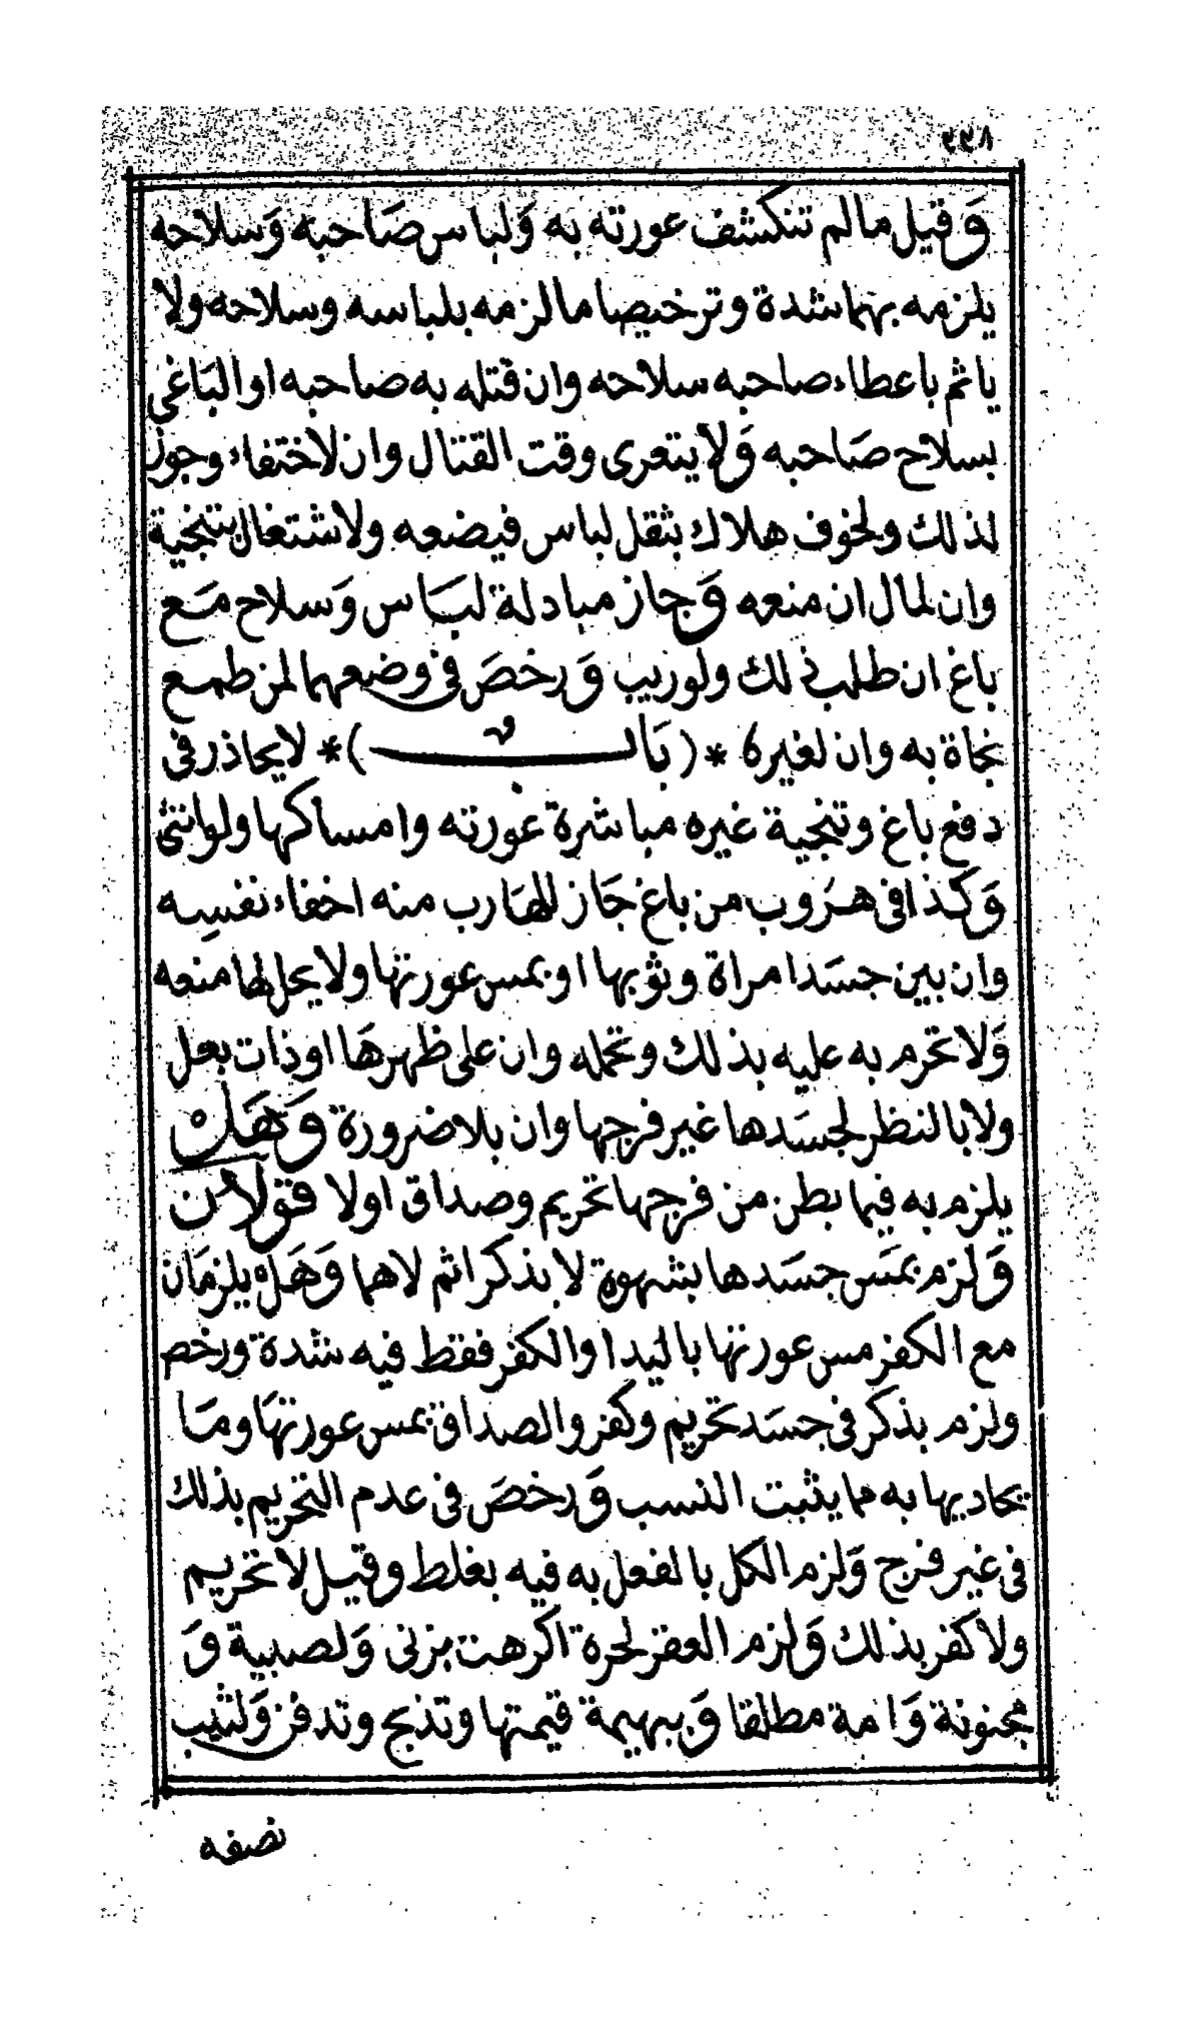 ٢٢٨
وَقيل مالم تنكشف عورته به وَلباس صَاحبه وَسلاحه
يلزمه بهما شدة وترخيصا مالزمه بلباسه وسلاحه ولا
ياثم باعطاء صاحبه سلاحه وان قتله به صاحبه اوالبَاغى
بسلاح صَاحبه وَلايتعرى وقت القتال وان لاختفاء وجوز
لذلك ولخوف هلاك بثقل لباس فيضعه ولاشتغال بتنجية
وان لمال ان منعه وَجاز مبادلة لبَاس وَسلاح مَع
باغ ان طلب ذلك ولوريب وَرخصَ فى وضعهما لمن طمع
نجاة به وان لغيره *(بَاب)* لايحاذر فى
دفع باغ وتنجية غيره مباشرة عورته وامساكها ولوانثى
وَكذافى هرَوب من باغ جَاز للهَارب منه اخفاء نفسِه
وان بين جسَدامراة وثوبها اوبمس عورتها ولايحل لها منعه
وَلاتحرم به عليه بذلك وتحمله وان على ظهرهَا اوذات بعل
ولابالنظر لجسَدها غير فرجها وان بلاضرورة وَهَل
يلزم به فيما بطن من فرجها تحريم وصداق اولا قولاَن
وَلزم بمسَ جسَدها بشهوة لابذكر اثم لاهما وَهَل يلزمَان
مع الكفر مس عورتها باليد اوالكفر فقط فيه شدة ورخص
ولزم بذكر فى جسَد تحريم وكفر والصداق بمس عورتهَا ومَا
يحاديها به مما يثبت النسب وَرخصَ فى عدم التحريم بذلك
فى غير فرج وَلزم الكل بالفعل به فيه بغلط وقيل لاتحريم
ولاكفر بذلك وَلزم العقر لحرة اكرهت بزنى وَلصبية وَ
مجنونة وَامة مطلقا وَبهيمة قيمتها وتذبح وتدفن وَلثيب
نصفه